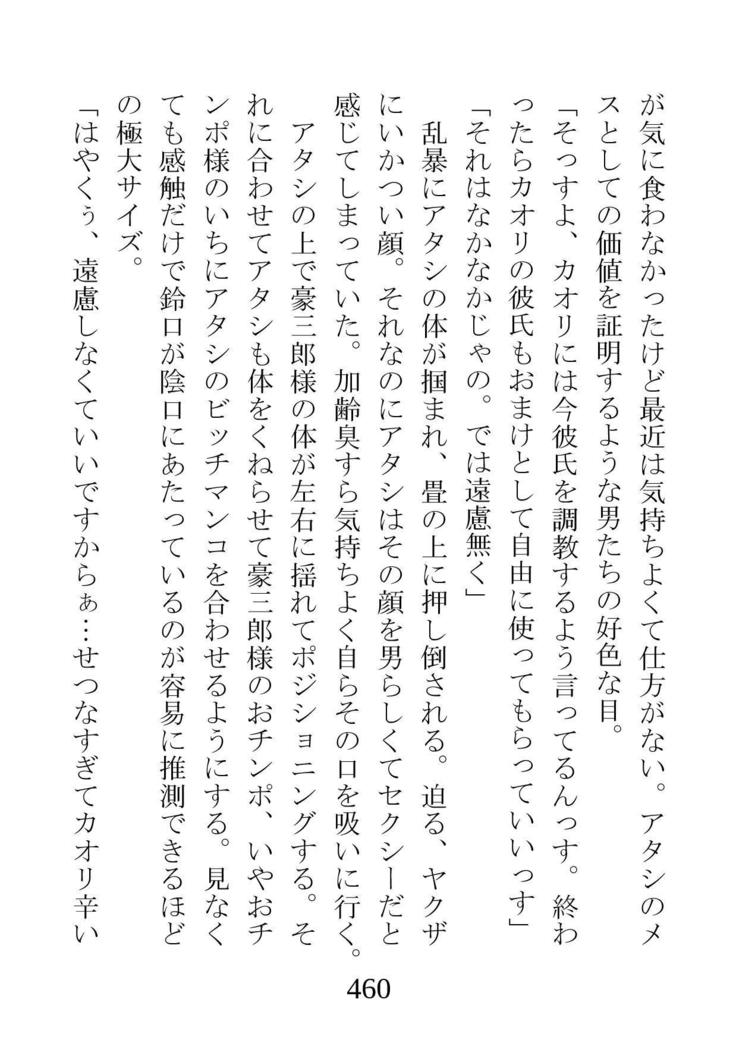 が気に食わなかったけど最近は気持ちよくて仕方がない。アタシのメ
スとしての価値を証明するような男たちの好色な目。
「そっすよ、カオリには今彼氏を調教するよう言ってるんっす。終わ
ったらカオリの彼氏もおまけとして自由に使ってもらっていいっす」
「それはなかなかじゃの。では遠慮無く」
　乱暴にアタシの体が掴まれ、畳の上に押し倒される。迫る、ヤクザ
にいかつい顔。それなのにアタシはその顔を男らしくてセクシーだと
感じてしまっていた。加齢臭すら気持ちよく自らその口を吸いに行く。
　アタシの上で豪三郎様の体が左右に揺れてポジショニングする。そ
れに合わせてアタシも体をくねらせて豪三郎様のおチンポ、いやおチ
ンポ様のいちにアタシのビッチマンコを合わせるようにする。見なく
ても感触だけで鈴口が陰口にあたっているのが容易に推測できるほど
の極大サイズ。
「はやくぅ、遠慮しなくていいですからぁ…せつなすぎてカオリ辛い
460